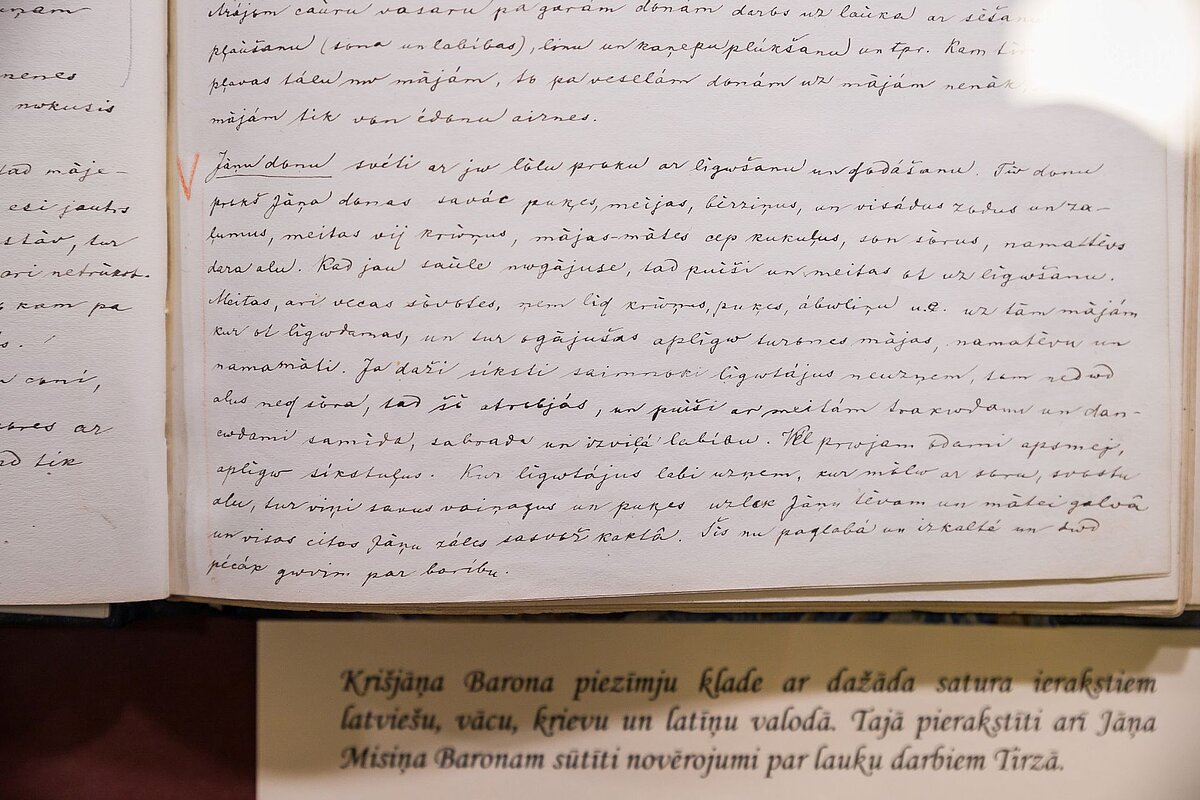 nenes
nokusis
tad māje-
esi jautrs
stāv, tur
ari netrūkst.
kam pa
ar
tik
cauru vasaru pa garām donām darbs uz lauka ar
pļaušanu (sona un labibas), linu un kaņepu plūkšanu) un tpr. Kam
pļavas tālu nw mājām, to pa veselām donām uz mājām nenāk,
mājām tik von ēdonu aiznes.
Jāņu donu svēti ar jw lōlu proku ar līgwšanu un godāšanu. Tiw donu
prokš Jāņa donas savāc puķes, meijas, bērziņus, un visādus zodus un za-
ļumus, meitas vij kroņus, mājas-mātes cep kukuļus, son sōrus, namatēvs
dara alu. Kad jau saule nwgājuse, tad puiši un meitas ot uz līgwšanu.
Meitas, ari vecas sōvotes, ņem līd kroņus, puķes, ābwliņu u.c. uz tām mājām
kur ot līgwdamas, un tur ogājušas aplīgw turones mājas, namatēvu un
namamāti. Ja daži sīksti saimnoki līgwtājus neuzņem, tom nedwd
alus neď sōra, tad šō atrobjās, un puiši ar meitām trakwdami un dan-
cwdami samīda, sabrada un izviļā labību. Vēl prwjam ōdami apsmej,
aplīgw sīkstuļus. Kur līgwtājus labi uzņem, kur mōlw ar sōru, svostu
alu, tur viņi savus vainagus un puķes uzlok Jāņu tēvam un mātei galvā
un visas citas Jāņu zāles sasvož kaktā. Šīs nu paglabā un izkaltē un dwd
pēcāk gwvīm par barību.
Krišjāņa Barona piezīmju klade ar dažāda satura ierakstiem
latviešu, vācu, krievu un latīņu valodā. Tajā pierakstīti arī Jāņa
Misiņa Baronam sūtīti novērojumi par lauku darbiem Tirzā.